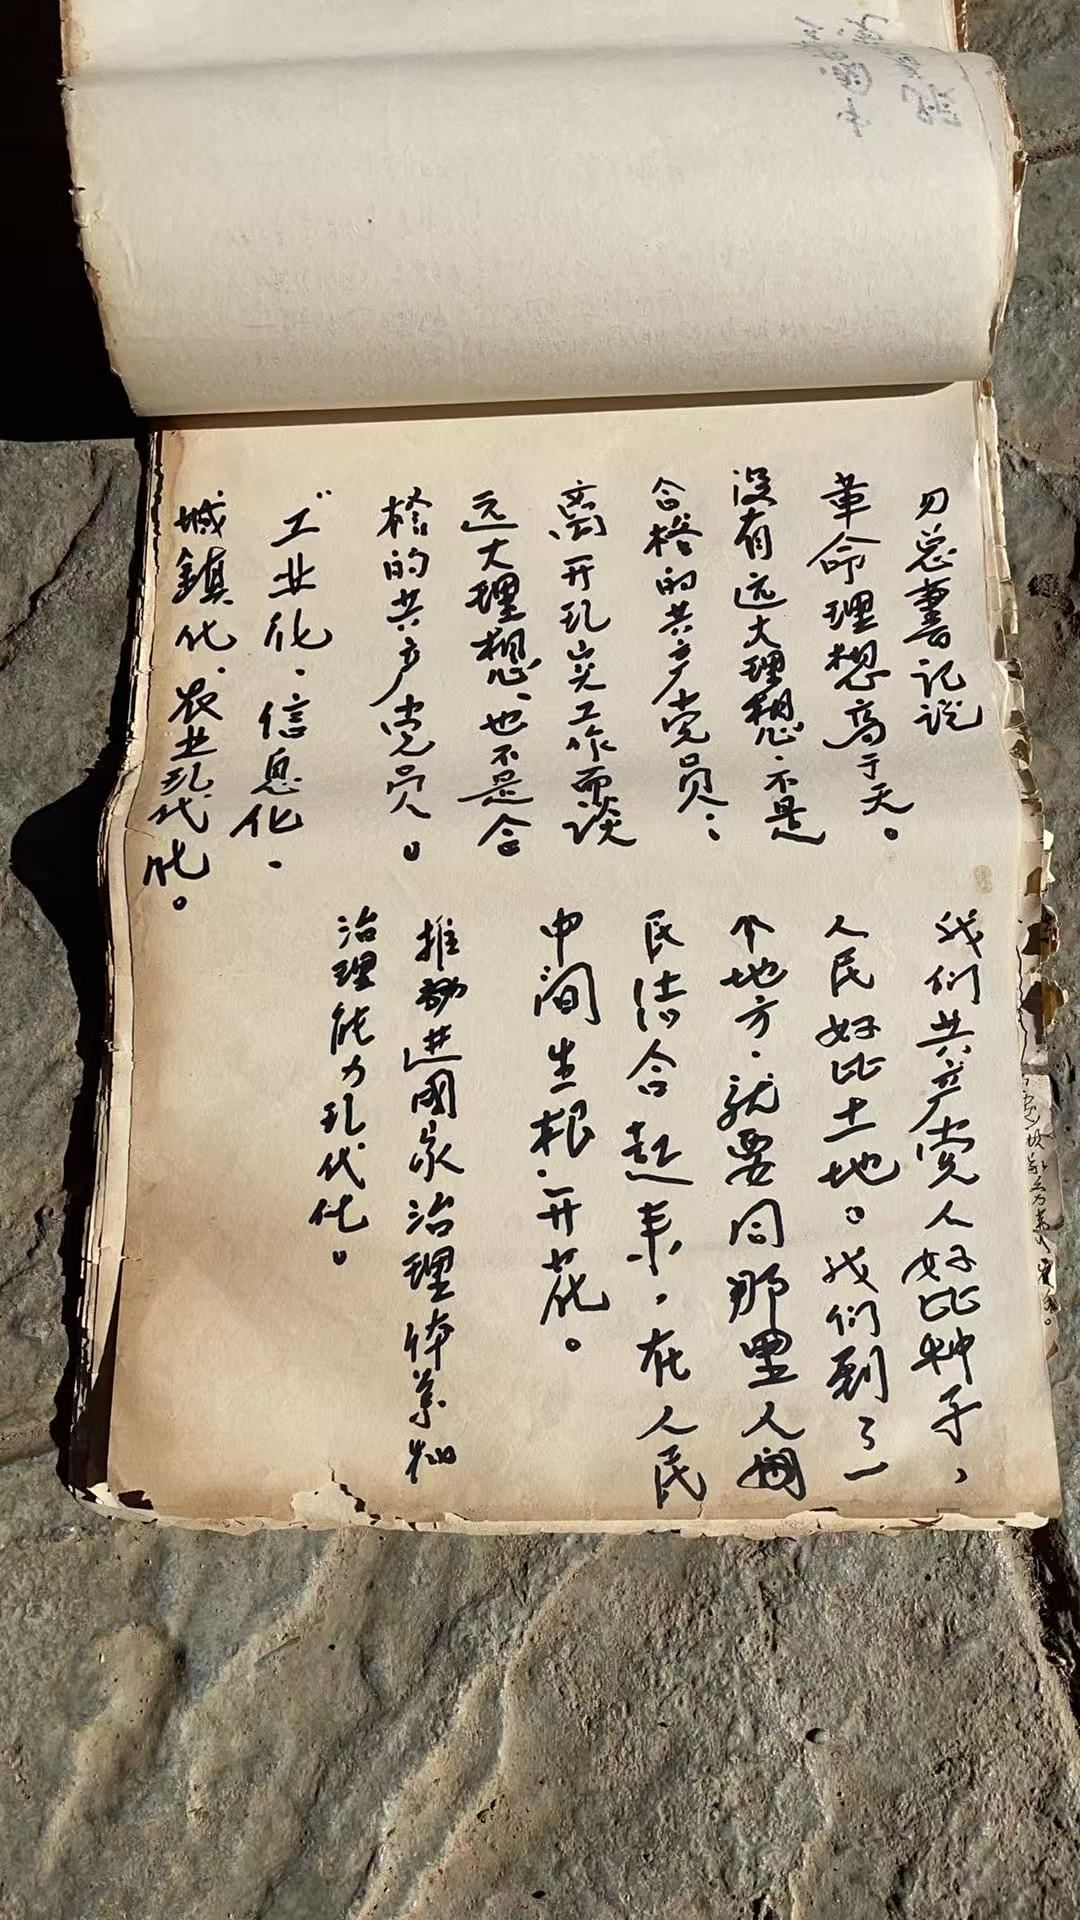 习总书记说
革命理想高于天。
没有远大理想、不是
合格的共产党员；
离开现实工作而谈
远大理想、也不是合
格的共产党员。
工业化、信息化、
城鎮化、农业现代化。
我们共产党人好比种子，
人民好比土地。我们到了一
个地方、就要同那里人
民结合起来，在人民
中间生根、开花。
推进國家治理体系和
治理能力现代化。